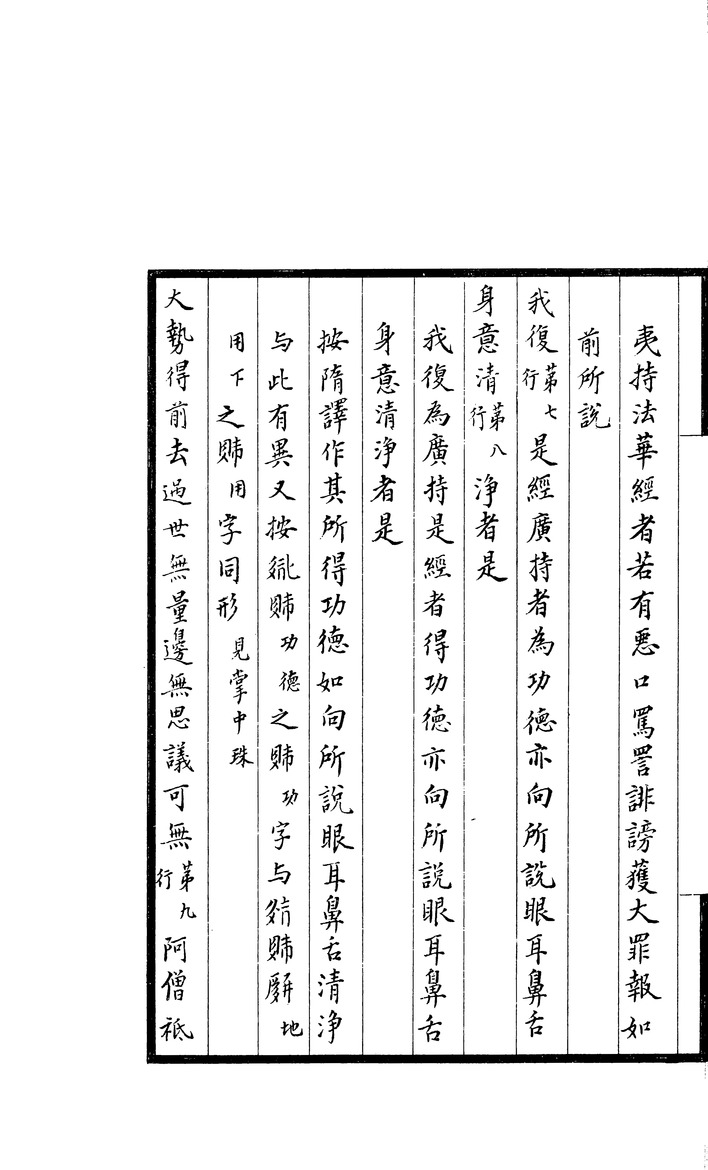 夷持法華經者若有悪口罵詈誹謗獲大罪報如
前所說
我復第七行是經廣持者為功德亦向所說眼耳鼻舌
身意清第八行浄者是
我復為廣持是經者得功德亦向所說眼耳鼻舌
身意清浄者是
按隋譯作其所得功德如向所說眼耳鼻舌清浄
与此有異又按功德之功字与地
用下之用字同形見掌中珠
大勢得前去過世無量邊無思議可無第九行阿僧祗